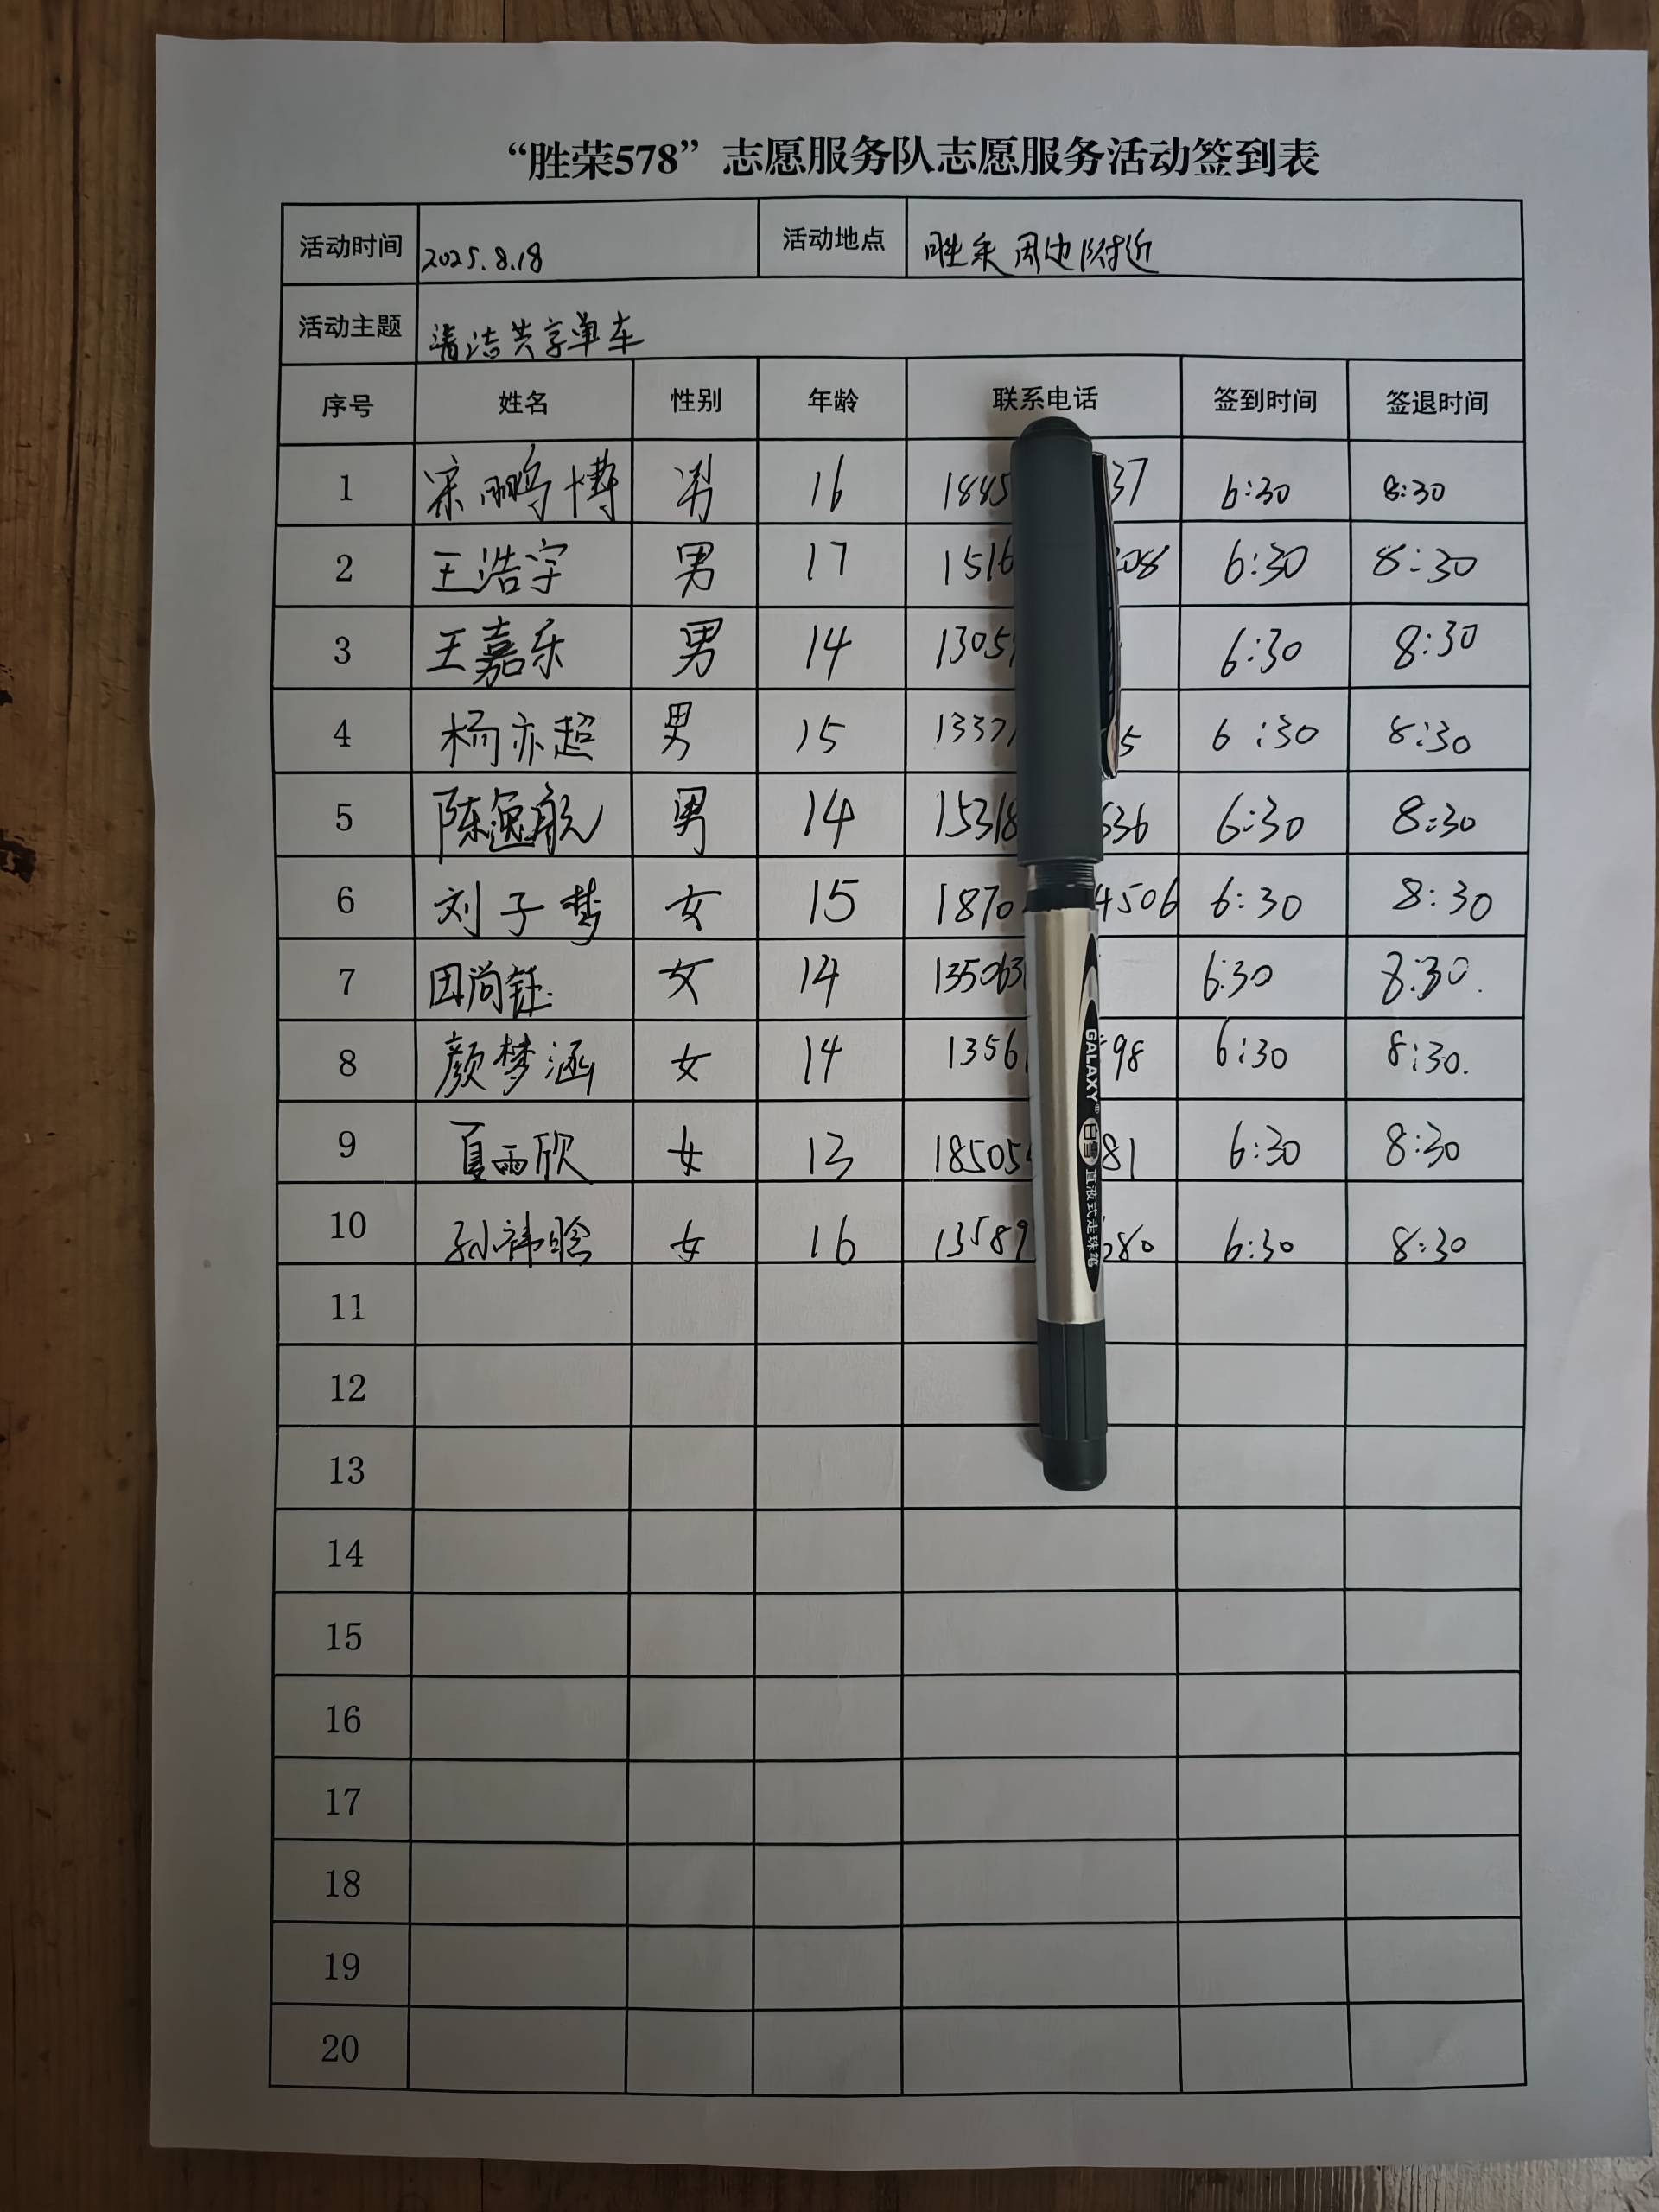 “胜荣578”志愿服务队志愿服务活动签到表
活动时间 2025.8.18 活动地点 胜采周边附近
活动主题 清洁共享单车
序号 姓名 性别 年龄 联系电话 签到时间 签退时间
1 宋鹏博 男 16 1845 37 6:30 8:30
2 王浩宇 男 17 1516 08 6:30 8:30
3 王嘉乐 男 14 1305 6:30 8:30
4 杨亦超 男 15 1337 5 6:30 8:30
5 陈逸航 男 14 15318 636 6:30 8:30
6 刘子梦 女 15 1870 4506 6:30 8:30
7 田尚钰. 女 14 135063 6:30 8:30.
8 颜梦涵 女 14 1356 98 6:30 8:30.
9 夏雨欣 女 13 18505 81 6:30 8:30
10 孙祎晗 女 16 13589 680 6:30 8:30
11
12
13
14
15
16
17
18
19
20
GALAXY® 白雪 直液式走珠笔